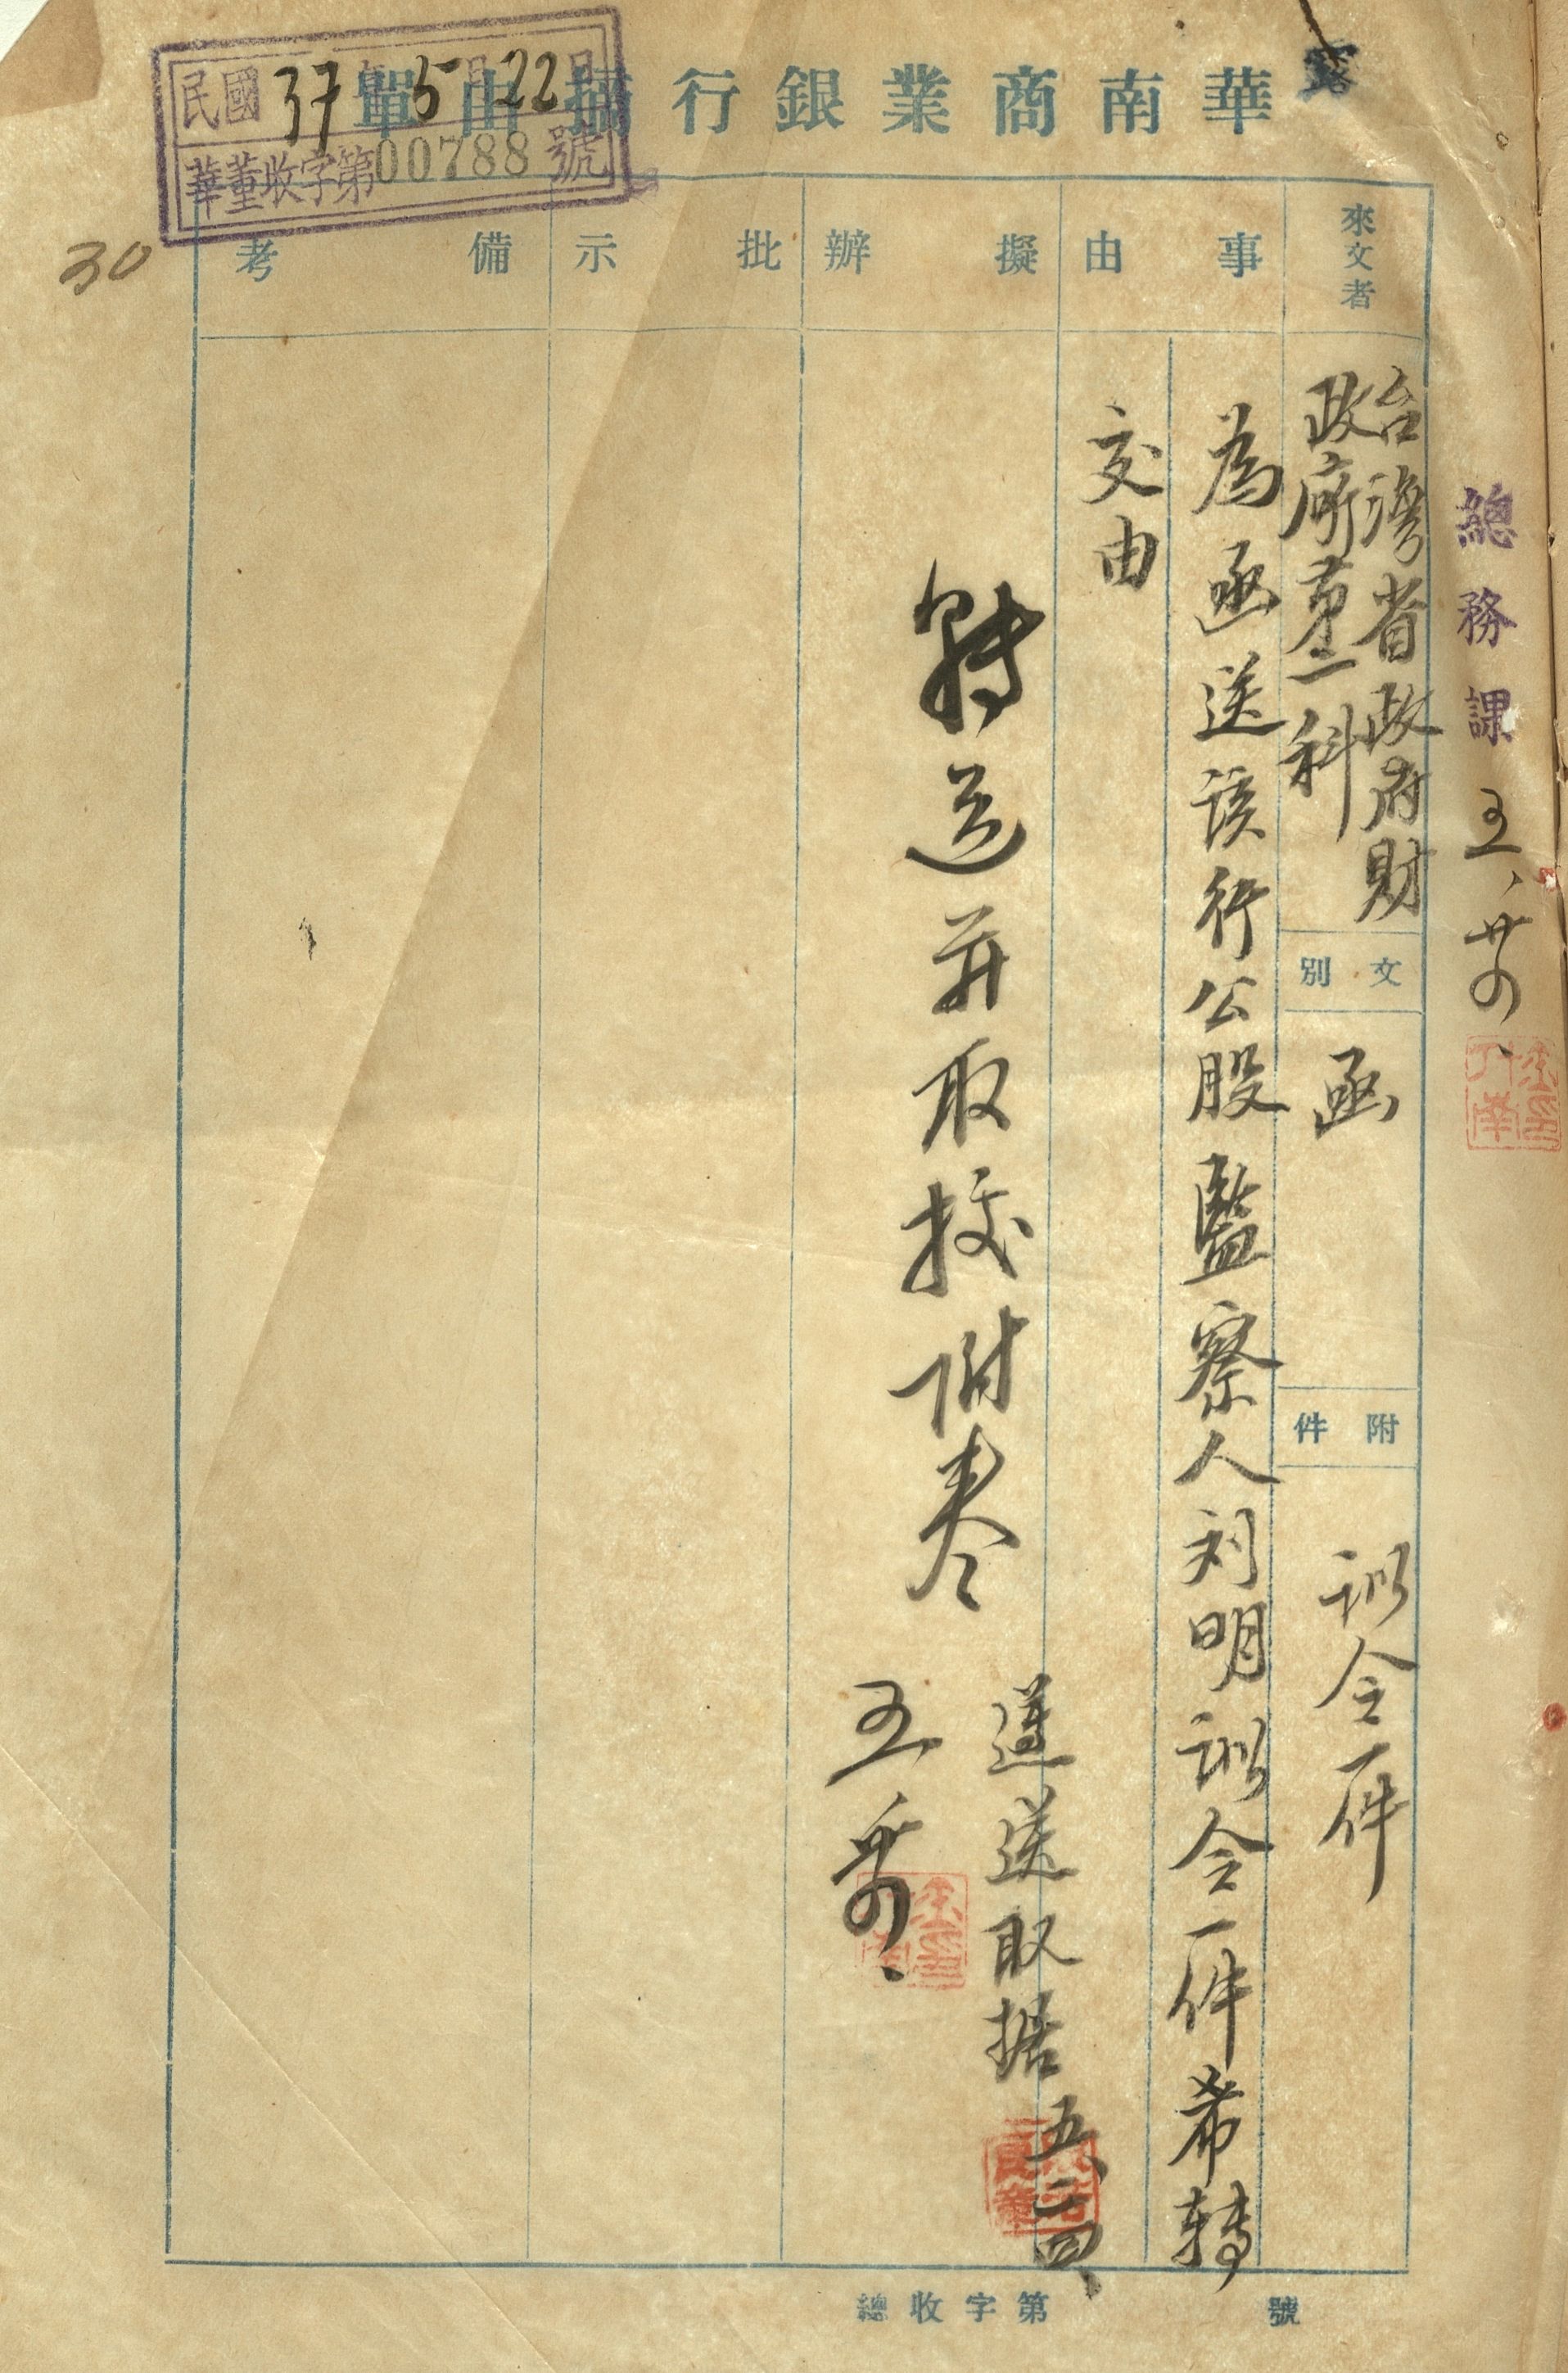 華南商業銀行摘由單
民國37年5月22日
華董收字第00788號
30
總務課
五、廿四、
來文者
台灣省政府財
政廳第二科
文別
函
附件
訓令一件
事由
為函送該行公股監察人刘明訓令一件希轉
交由
擬辦
轉送并取
附卷
遵送取据 五、二四、
五、廿四、
批示
備考
總收字第 號